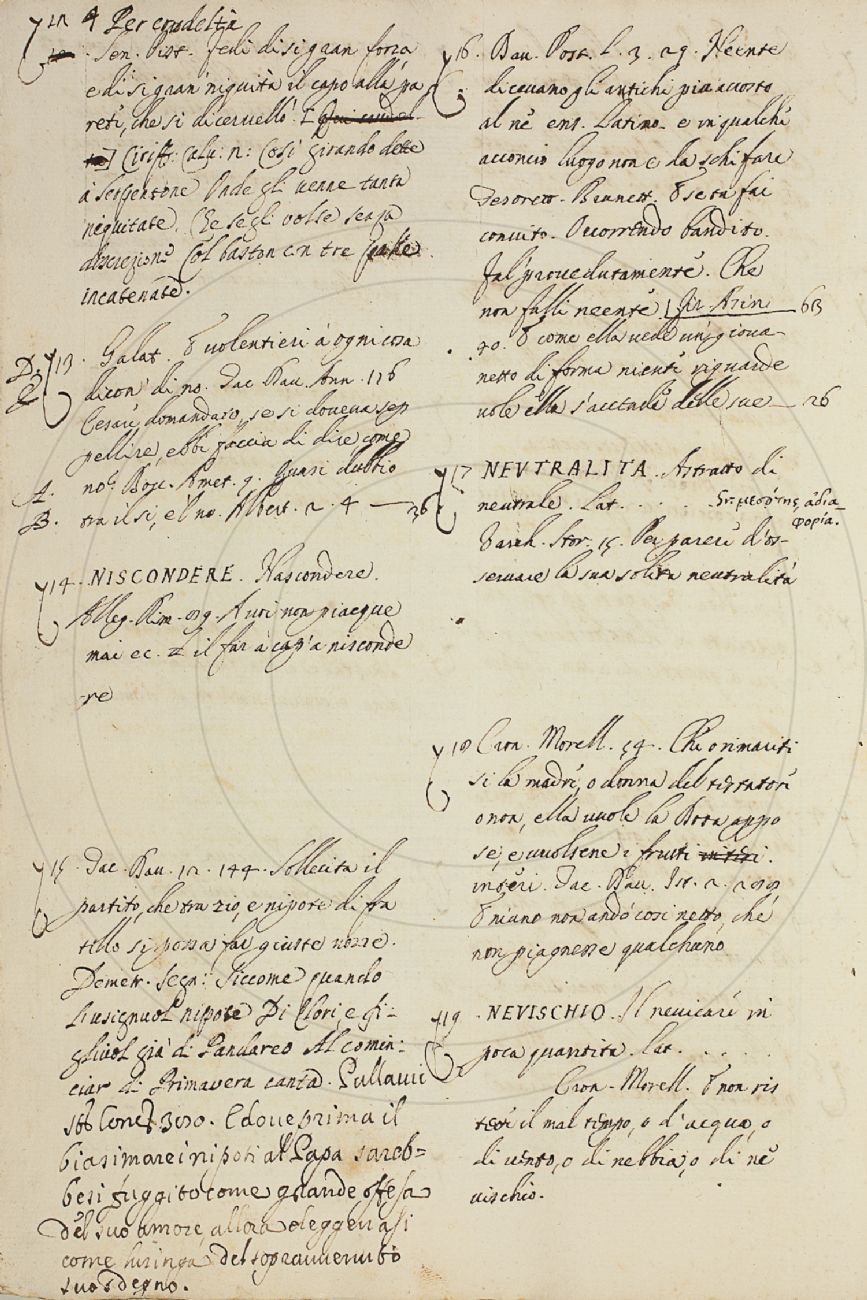 12 ¶ Per crudeltà
Sen. Pist. Fedi di si gran forza
e di si gran niquità il capo alla pa
rete, che si dicervellò. [
] Ciriff. Calv: n: Così girando dette
à Serpentone Onde gli venne tanta
niquitate. Che se gli volse senza
discrezione Col baston con tre palle
incatenate.
D. 13. Galat. E volentieri à ogni cosa
E. dicon' di no. Tac. Dav. Ann. 116
Cesare, domandato, se si doveva sep
pellire, ebbe faccia di dire come
A. no. Bocc. Amet. 9. Quasi dubbio
B. tra il sì, e'l no. Albert. 2. 4 — 36
14. NISCONDERE. Nascondere.
Alleg. Rim. 219. A voi non piacque
mai ec. = il far à cap' a nisconde
re
15. Tac. Dav. 12. 144. Sollecita il
partito, che tra zio, e nipote di fra
tello si possa far giuste nozze.
Demetr. Segn: Siccome quando
Lusignuol nipote Di Clori, e fi=
gliuol già di Pandareo Al comin=
ciar di Primavera canta. Pallavic
stò Conc. 3 Edove prima il
biasimare i nipoti al Papa sareb=
besi fuggito come grande offesa
del suo amore, allora leggevasi
come lusinga del sopravvenuto
suo sdegno.
16. Dav. Post. L. 3. 29. Neente
dicevano gli antichi più accosto
al ne ens. Latino. e in qualche
acconcio luogo non è da schifare
Tesorett. Brunett. E se tu fai
convito. O corrindo bandito.
Fal provedutamente. Che
non falli neente | Fir. Asin — 63
40. E come ella vede un giova-
netto di forma niente riguarde
vole ella s'accende delle sue — 26
17 NEVTRALITA. Astratto di
neutrale. Lat. . . . Gr. μεσότης, ἀδια-
φορία.
Varch. Stor. 15. Per parere d'os-
servare la sua solita neutralità
18 Cron. Morell. 54. Che o rimariti
si la madre, o donna del testatore
o non, ella vuole la Dota appo
sè, e vuolsene i frutti
interi. Tac. Dav. Ist. 2. 299
E niano non andò così netto, che
non piagnesse qualchuno
19. NEVISCHIO. Il nevicare in
poca quantita. Lat. . . . .
Cron. Morell. E non ris
tette il mal tempo, o d'acqua, o
di vento, o di nebbia, o di ne
vischio.